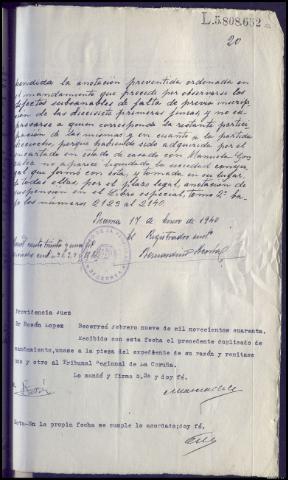 L.5.808.652
20
pendida la anotación preventiva ordenada en
el mandamiento que precede por observarse los
defectos subsanables de falta de previa inscrip-
ción de las diecisiete primeras fincas, y no ex-
presarse a quien corresponde la restante partici-
pación de las mismas y en cuanto a la partida
dieciocho, porque habiendo sido adquirida por el
encartado en estado de casado con Manuela
no aparece liquidada la sociedad conyu-
gal que formó con ésta, y tomada en su lugar
de todas ellas, por el plazo legal, anotación de
suspensión en el Libro especial, tomo 2º ba-
jo los números 2123 al 2140.
17 de Enero de 1940
el Registrador
Bernardino
Providencia Juez
Sr Rosón Lopez Becerreá febrero nueve de mil novecientos cuarenta.
Recibido con esta fecha el precedente duplicado de
mandamiento, unase a la pieza del expediente de su razón y remitase
uno y otro al Tribunal Regional de La Coruña.
Lo mandó y firma S,Sª y doy fé.
Nota-En la propia fecha se cumple lo acordado; doy fé.